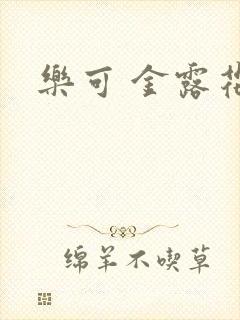 樂可 金露
绵羊不喫草